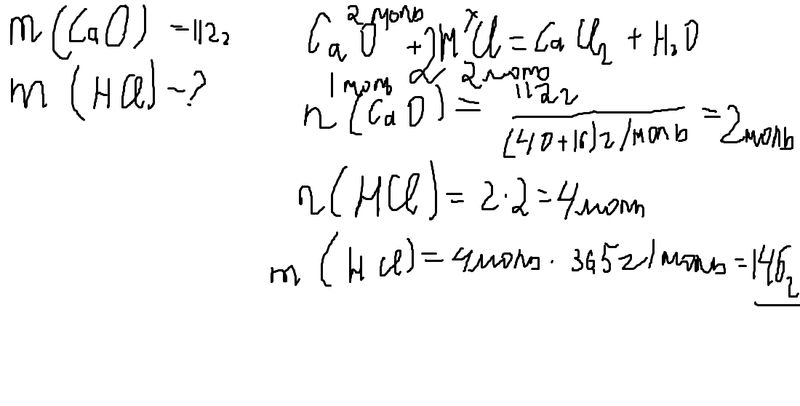 m(CaO) = 112г
m(HCl) - ?
2 моль x
CaO + 2HCl = CaCl₂ + H₂O
1 моль 2 моль
n(CaO) = 112г / (40+16)г/моль = 2моль
n(HCl) = 2·2 = 4моль
m(HCl) = 4моль · 365г/моль = 146г